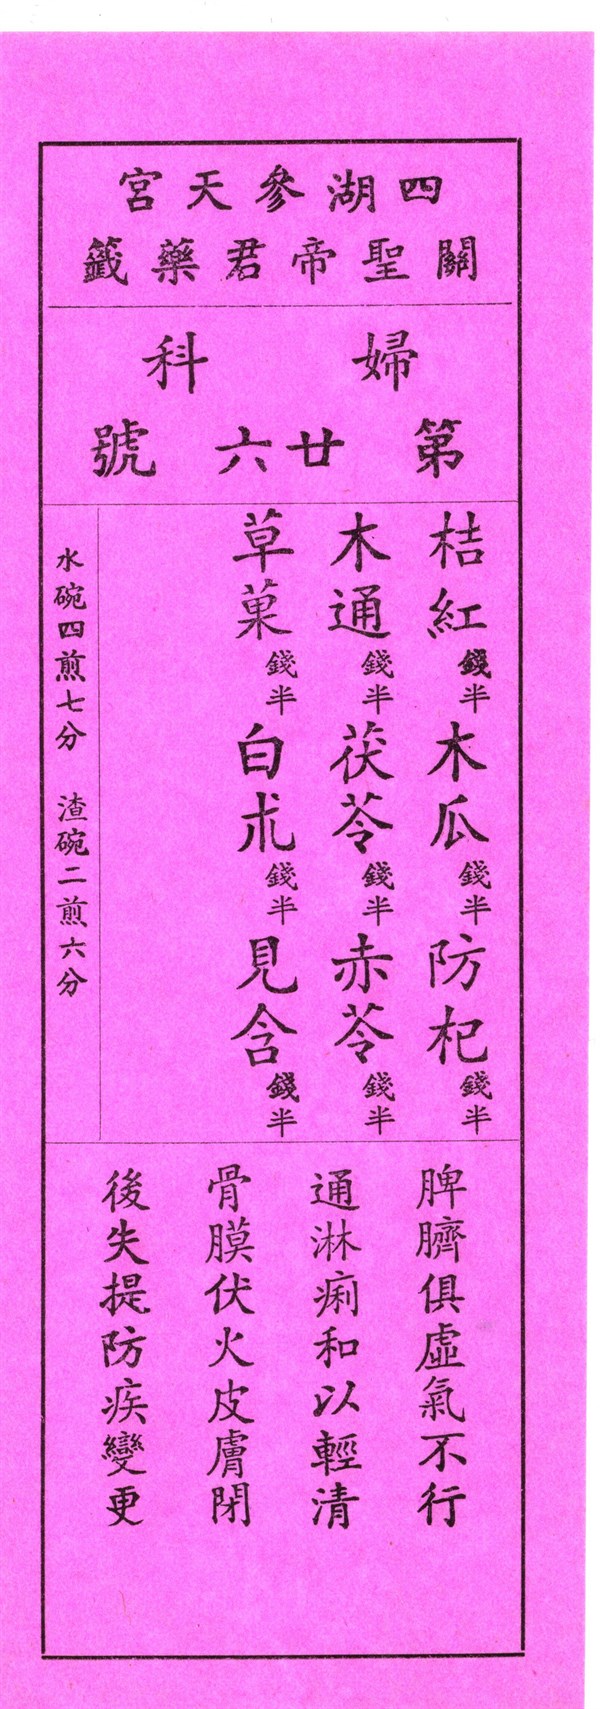 四湖參天宮
關聖帝君藥籤
婦科
第廿六號
桔紅錢半木瓜錢半防杞錢半
木通錢半茯苓錢半赤苓錢半
草菓錢半白朮錢半見含錢半
水碗四煎七分 渣碗二煎六分
脾臍俱虛氣不行
通淋痢和以輕清
骨膜伏火皮膚閉
後失提防疾變更